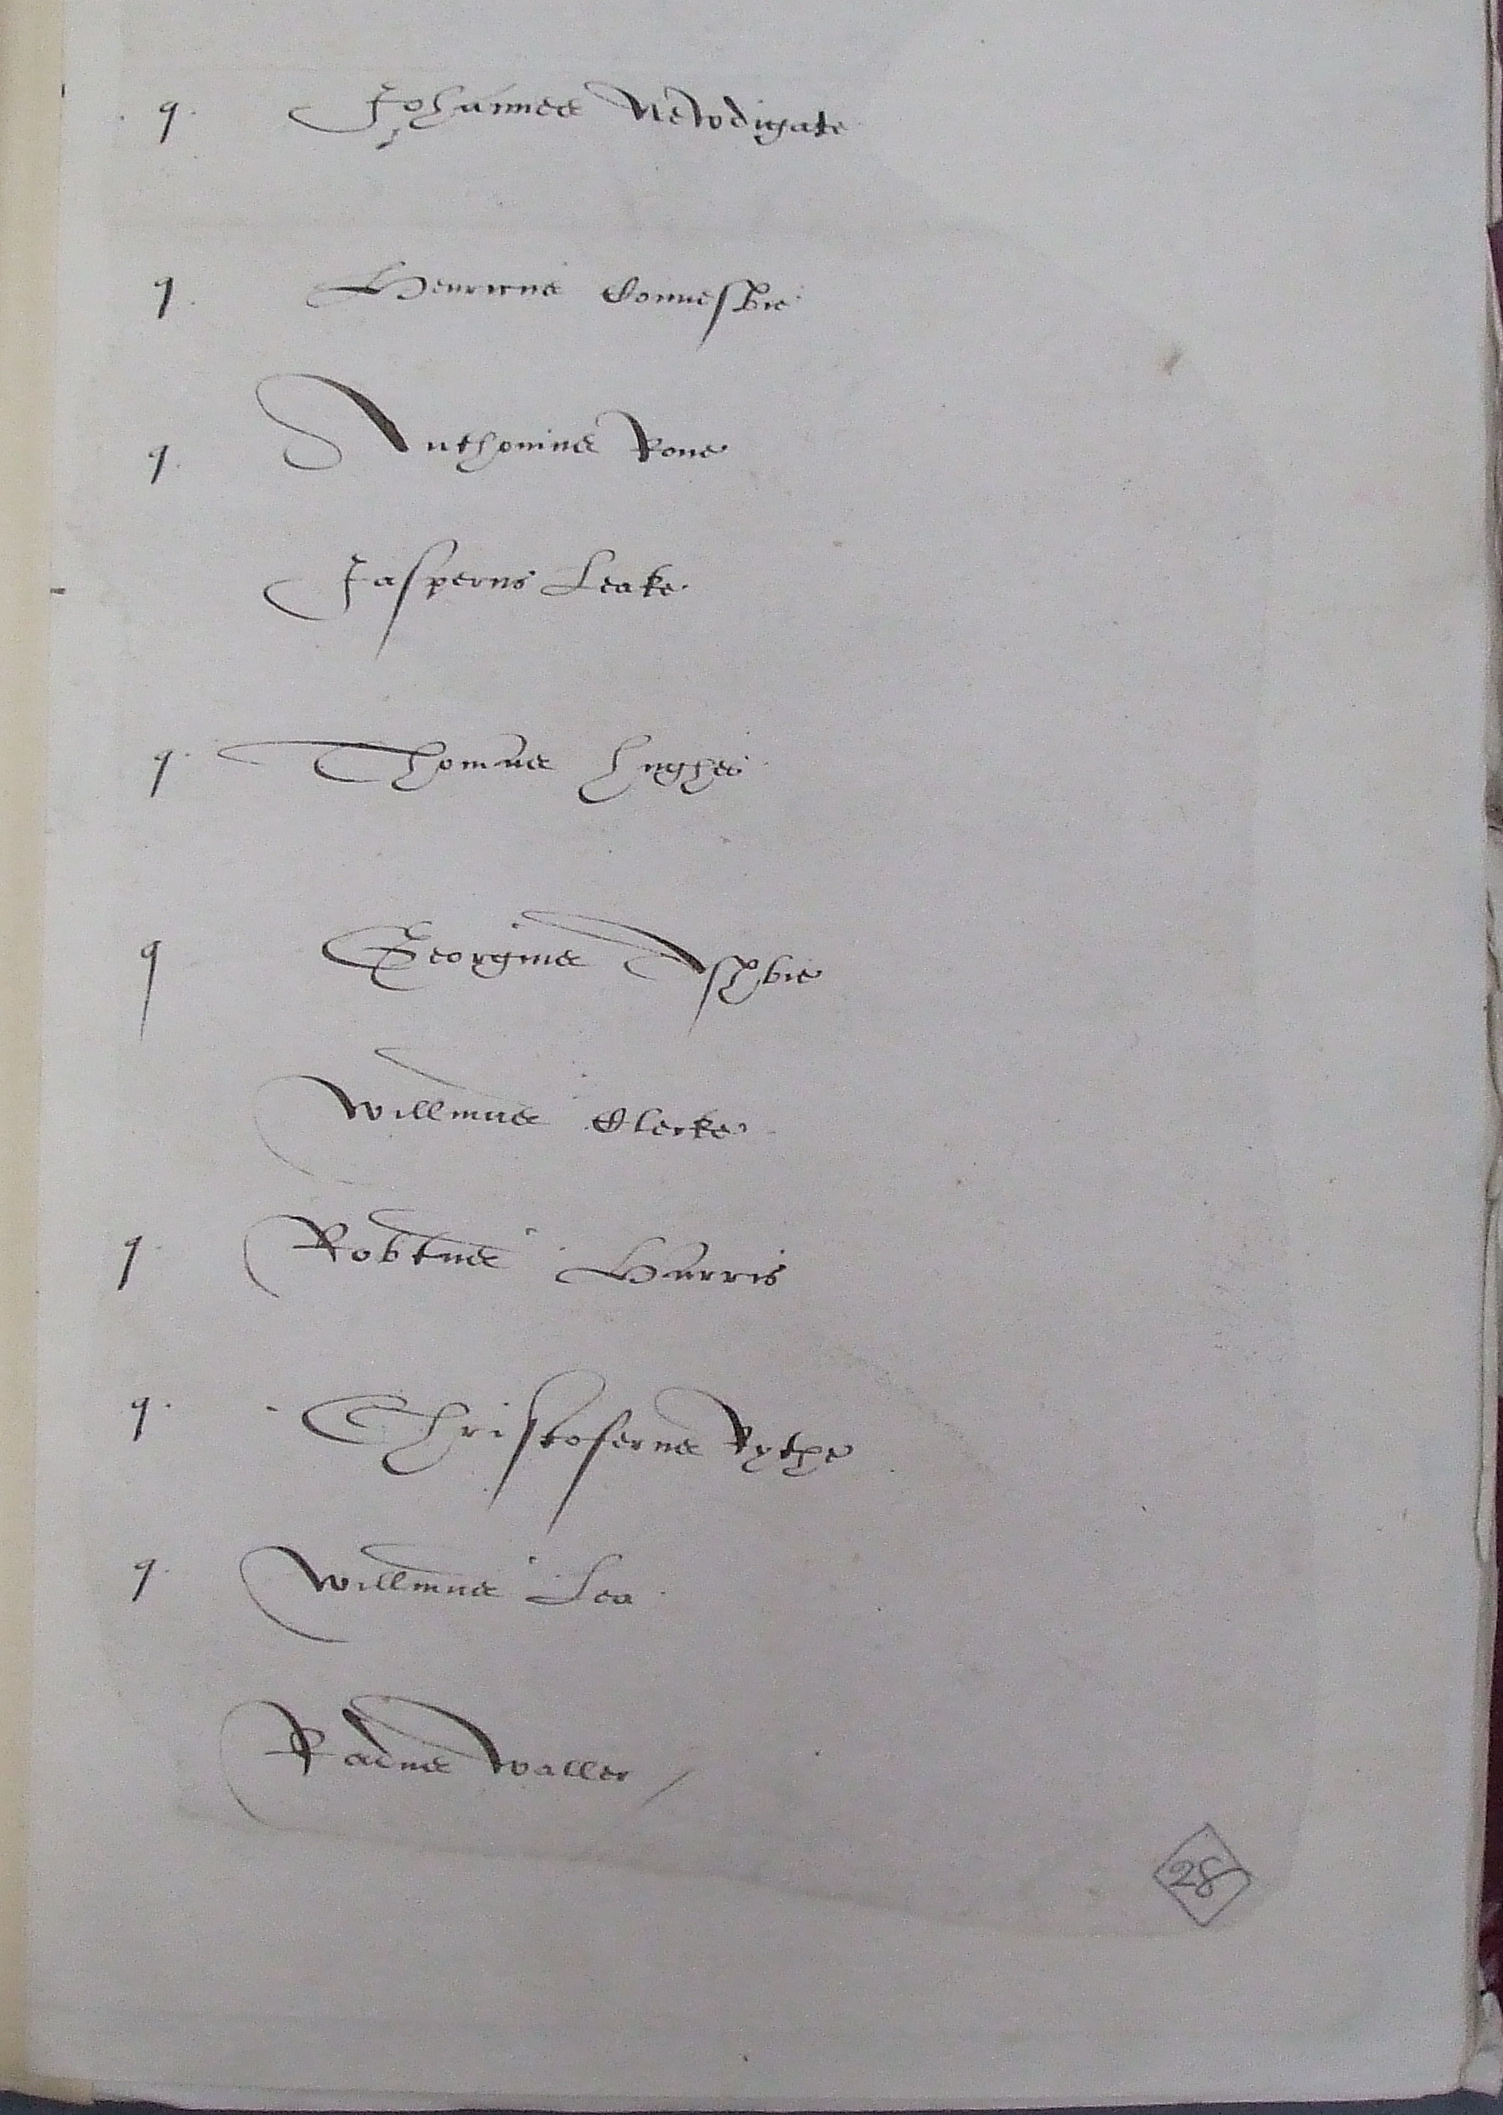 q. Johannes Newdigate
q. Henricus Connesbie
q. Anthonius Rone
Jasperus Leake.
q. Thomas Hughes
q Georgius Ashbie
Willmus Clerke
q. Robtus Harris
q. Christoferus Rythe
q. Willmus Lea.
Radus Waller /
28